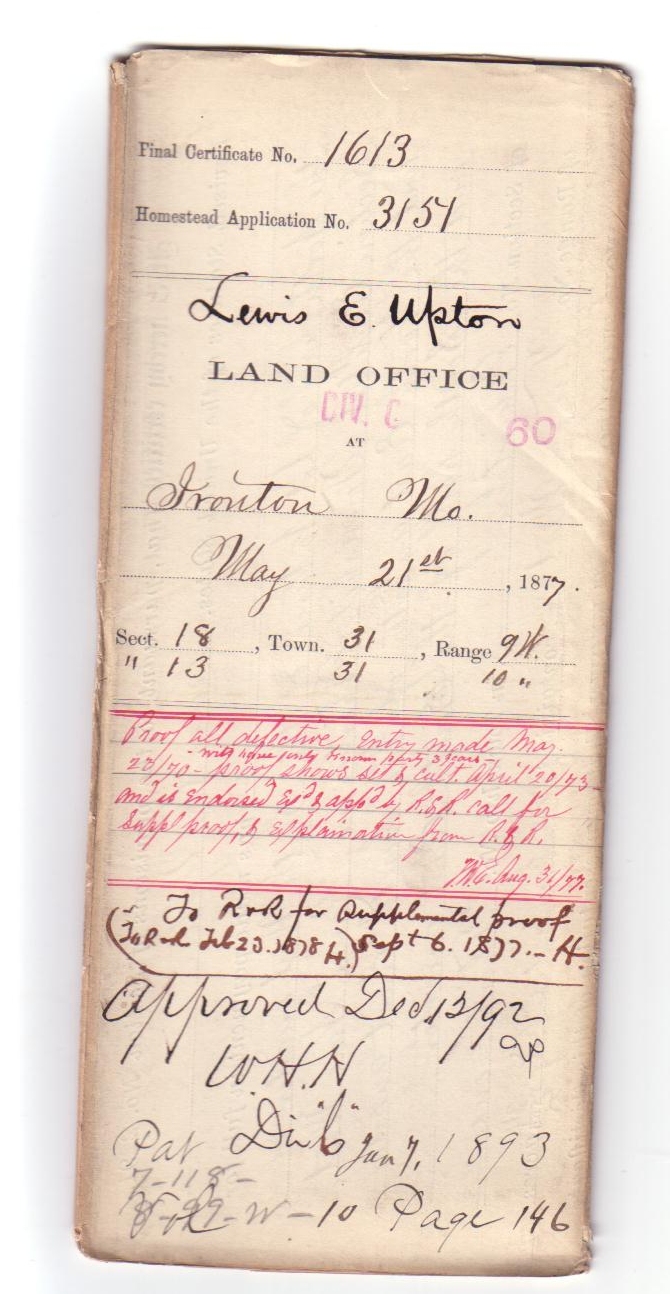 Final Certificate No. 1613
Homestead Application No. 3151
Lewis E. Upton
LAND OFFICE
DIV. C
60
AT
Ironton Mo.
May 21st, 1877.
Sect. 18, Town. 31, Range 9W.
" 13 31 10 "
Proof all defective, Entry made May
23/70 - proof shows set & cult. April 20/73
and is endorsed Ex'd & app'd by R.&R. call for
Suppl proof, & explaination from R.&R.
Aug. 31/77.
To R&R for Supplemental proof
(To R&R Feb 23. 1878 H.) Sept 6. 1877. - H.
Approved Dec. 13/92
W.H.N
Div "C"
Pat Jan 7, 1893
7-118-
W - 10 Page 146